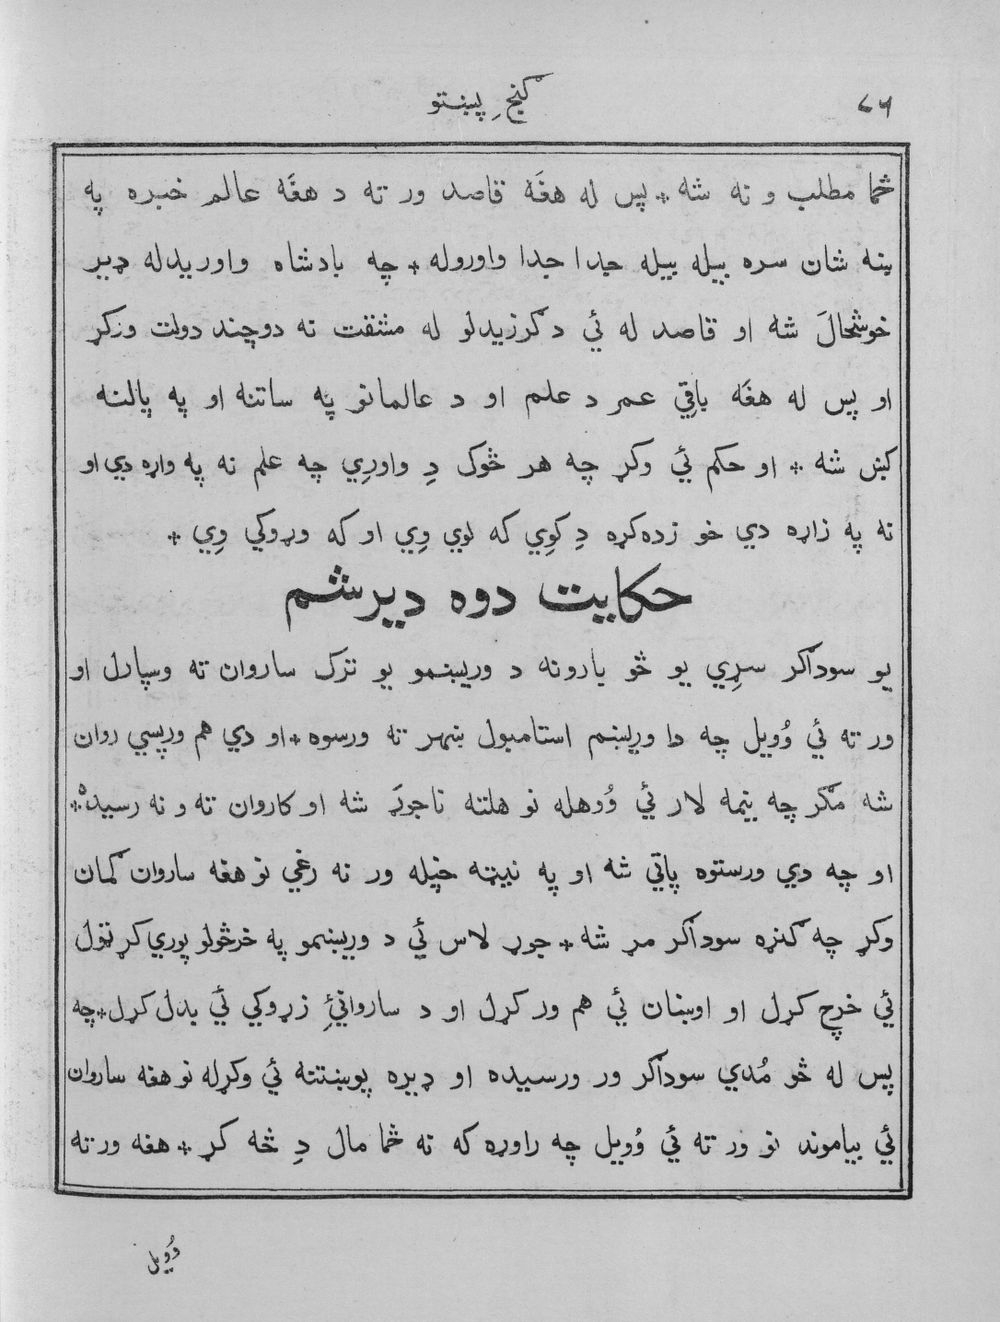 ۷۶ گنجِ پښتو
څما مطلب و نه شه * پس له هغَه قاصد ور ته د هغَه عالم خبره په
ښه شان سره بيله بيله جدا جدا واوروله * چه بادشاه واوريدله ډير
خوشحالَ شهٔ او قاصد له ئي د گرزيدلو له مشقت نه دوچند دولت وركړ
او پس له هغَه باقِي عمر د علم او د عالمانو په ساتنه او په پالنه
كښ شه * او حكم ئي وكړ چه هر څوك دِ واورِي چه علم نه په واړه دي او
نه په زاړه دي خو زده‌كړه دِ كوِي كه لوي وِي او كه وړوكي وِي *
حكايت دوه ديرشم
يو سوداگر سړِي يو څو بارونه د وريښمو يو ترك ساروان ته وسپارل او
ور ته ئي وُويل چه دا وريښم استامبول ښهر ته ورسوه * او دي هم ورپسي روان
شه مگر چه نيمه لار ئي وُوهله نو هلته ناجوړَ شه او كاروان ته و نه رسيدهٔ *
او چه دي ورستوه پاتي شه او په نيټه خپله ور نه رغي نو هغه ساروان گمان
وكړ چه گنړه سوداگر مړ شه * جوړ لاس ئي د وريښمو په خرڅولو پوري كړ نقول
ئي خرچ كړل او اوښان ئي هم ور كړل او د ساروانئِ زړوكي ئي بدل كړل * چه
پس له څو مُدي سوداگر ور ورسيده او ډيره پوښتنه ئي وكړله نو هغه ساروان
ئي بياموند نو ور ته ئي وُويل چه راوړه كه نه څما مال دِ څه كړ * هغه ور ته
وُويل